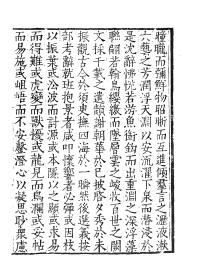 瞳矓而彌鮮物昭晰而互進傾羣言之瀝液漱
六藝之芳潤浮天淵以安流濯下泉而潛浸於
是沈辭怫悅若游魚銜鈎而出重淵之深浮藻
聯翩若翰鳥纓繳而墜曾雲之峻收百世之闕
文採千載之遺韻謝朝華於已披啓夕秀於未
振觀古今於須臾撫四海於一瞬然後選義按
部考辭就班抱景者咸叩懷響者必彈或因枝
以振葉或沿波而討源或本隱以之顯或求易
而得難或虎變而獸擾或龍見而鳥瀾或妥帖
而易施或岨峿而不安罄澄心以凝思眇衆慮